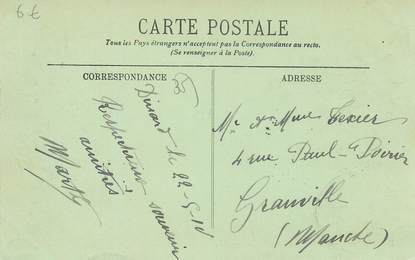 6€
CARTE POSTALE
Tous les Pays étrangers n'acceptent pas la Correspondance au recto.
(Se renseigner à la Poste).
CORRESPONDANCE
ADRESSE
35
Dinard le 22-5-10
Respectueux souvenir
amitiés
Marthe
Mr & Mme Texier
4 rue Paul Poirier
Granville
(Manche)